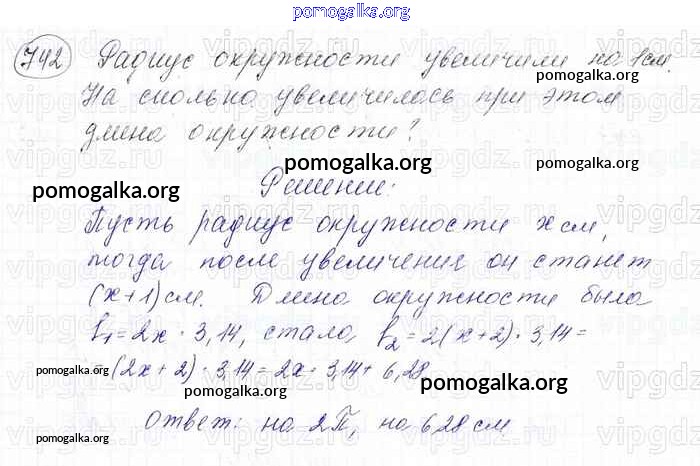 pomogalka.org
742 Радиус окружности увеличили на 1 см.
На сколько увеличилась при этом
длина окружности?
Решение:
Пусть радиус окружности x см,
тогда после увеличения он станет
(x+1) см. Длина окружности была
l₁=2x·3,14, стала l₂=2(x+2)·3,14=
=(2x+2)·3,14=2x·3,14+6,28
Ответ: на 2П, на 6,28 см
pomogalka.org
pomogalka.org
pomogalka.org
pomogalka.org
pomogalka.org
pomogalka.org
pomogalka.org
pomogalka.org
pomogalka.org